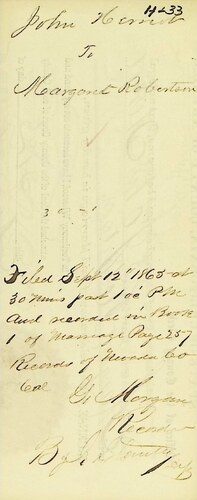 H-33
John Herriot
To
Margaret Robertson
Filed Sept 12th 1865 at
30 mins past 1 oc P.M
and recorded in Book
1 of Marriage Page 257
Records of Nevada Co
Cal
Morgan
Recorder
By